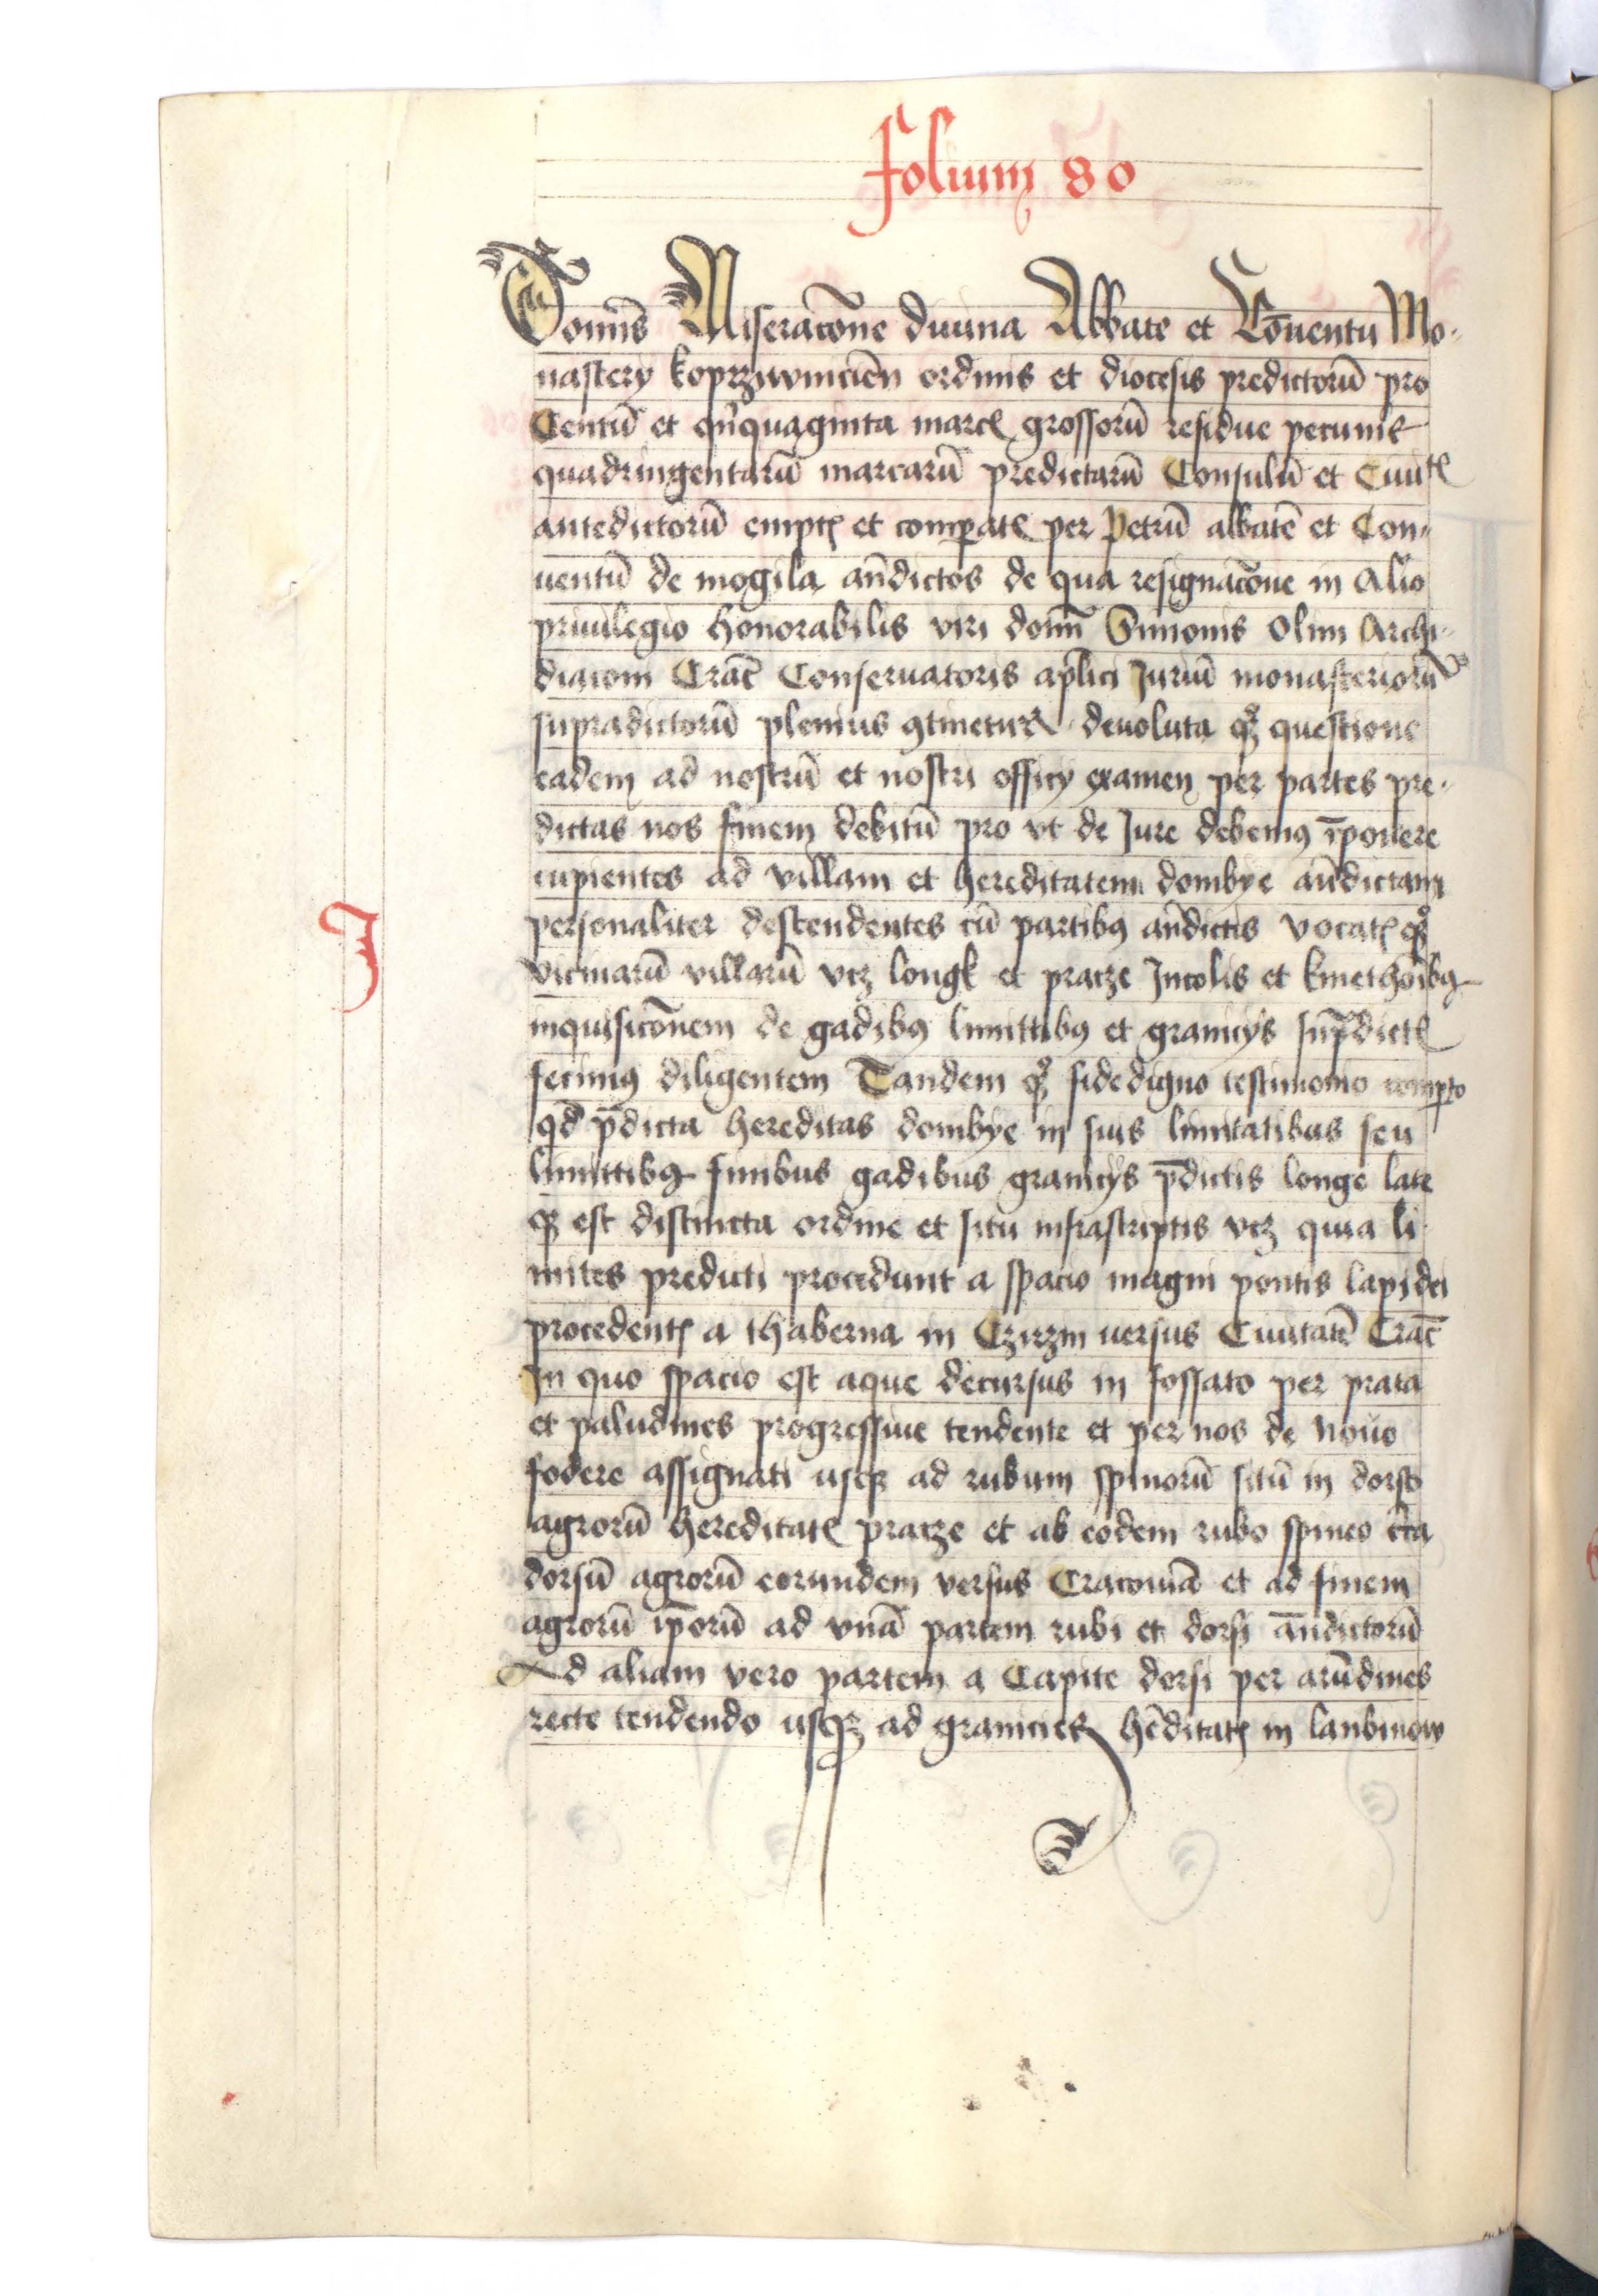 Folium 80
Domīs Miseracōne diuina Abbate et Cōuentu Mo-
nastery koprziwnicien̄ ordinis et diocesis predictorū pro
Centū et qn̄quaginta marcꝭ grossorū residue pecunie
quadringentarū marcarū predictarū Consulū et Ciuitꝭ
antedictorū emptꝭ et comꝑatꝭ per Petrū abbatē et Con-
uentū de mogila an̄dictos de qua resignacōne in Alio
priuilegio honorabilis viri domī Simonis Olim Archi-
diaconi Crac̄ Conseruatoris ap̄lici Juriū monasteriorū
supradictorū plenius ꝯtinetur deuoluta qꝫ questione
eadem ad nostrū et nostri officy examen per partes pre-
dictas nos finem debitū pro vt de Jure debemꝰ īponere
cupientes ad villam et hereditatem dombye an̄dictam
personaliter descendentes cū partibꝰ an̄dictis vocatꝭ qꝫ
J
vicinarū villarū vcꝫ longk et pracze Jncolis et kmethoībꝰ
inquisicōnem de gadibꝰ limittibꝰ et granicys sup̄dictꝭ
fecimꝰ diligentem Tandem qꝫ fidedigno testimonio comꝑto
qd̄ p̄dicta hereditas dombye in suis limitatibus seu
limittibꝰ finibus gadibus granicys p̄dictis longe late
qꝫ est distincta ordine et situ infrascriptis vcꝫ quia li-
mites predicti procedunt a spacio magni pontis lapidei
procedentꝭ a thaberna in Czirzin uersus Ciuitatē Crac̄
Jn quo spacio est aque decursus in fossato per prata
et paludines progressiue tendente et per nos de nouo
fodere assignati usqꝫ ad rubum spinorū sitū in dorso
agrorū hereditatꝭ pracze et ab eodem rubo spineo c̄ca
dorsū agrorū eorundem versus Cracouiā et ad finem
agrorū ip̄orū ad vnā partem rubi et dorsi an̄dictorū
Ad aliam vero partem a Capite dorsi per arūdines
recte tendendo usqꝫ ad granicies hēditatꝭ in lanbinow